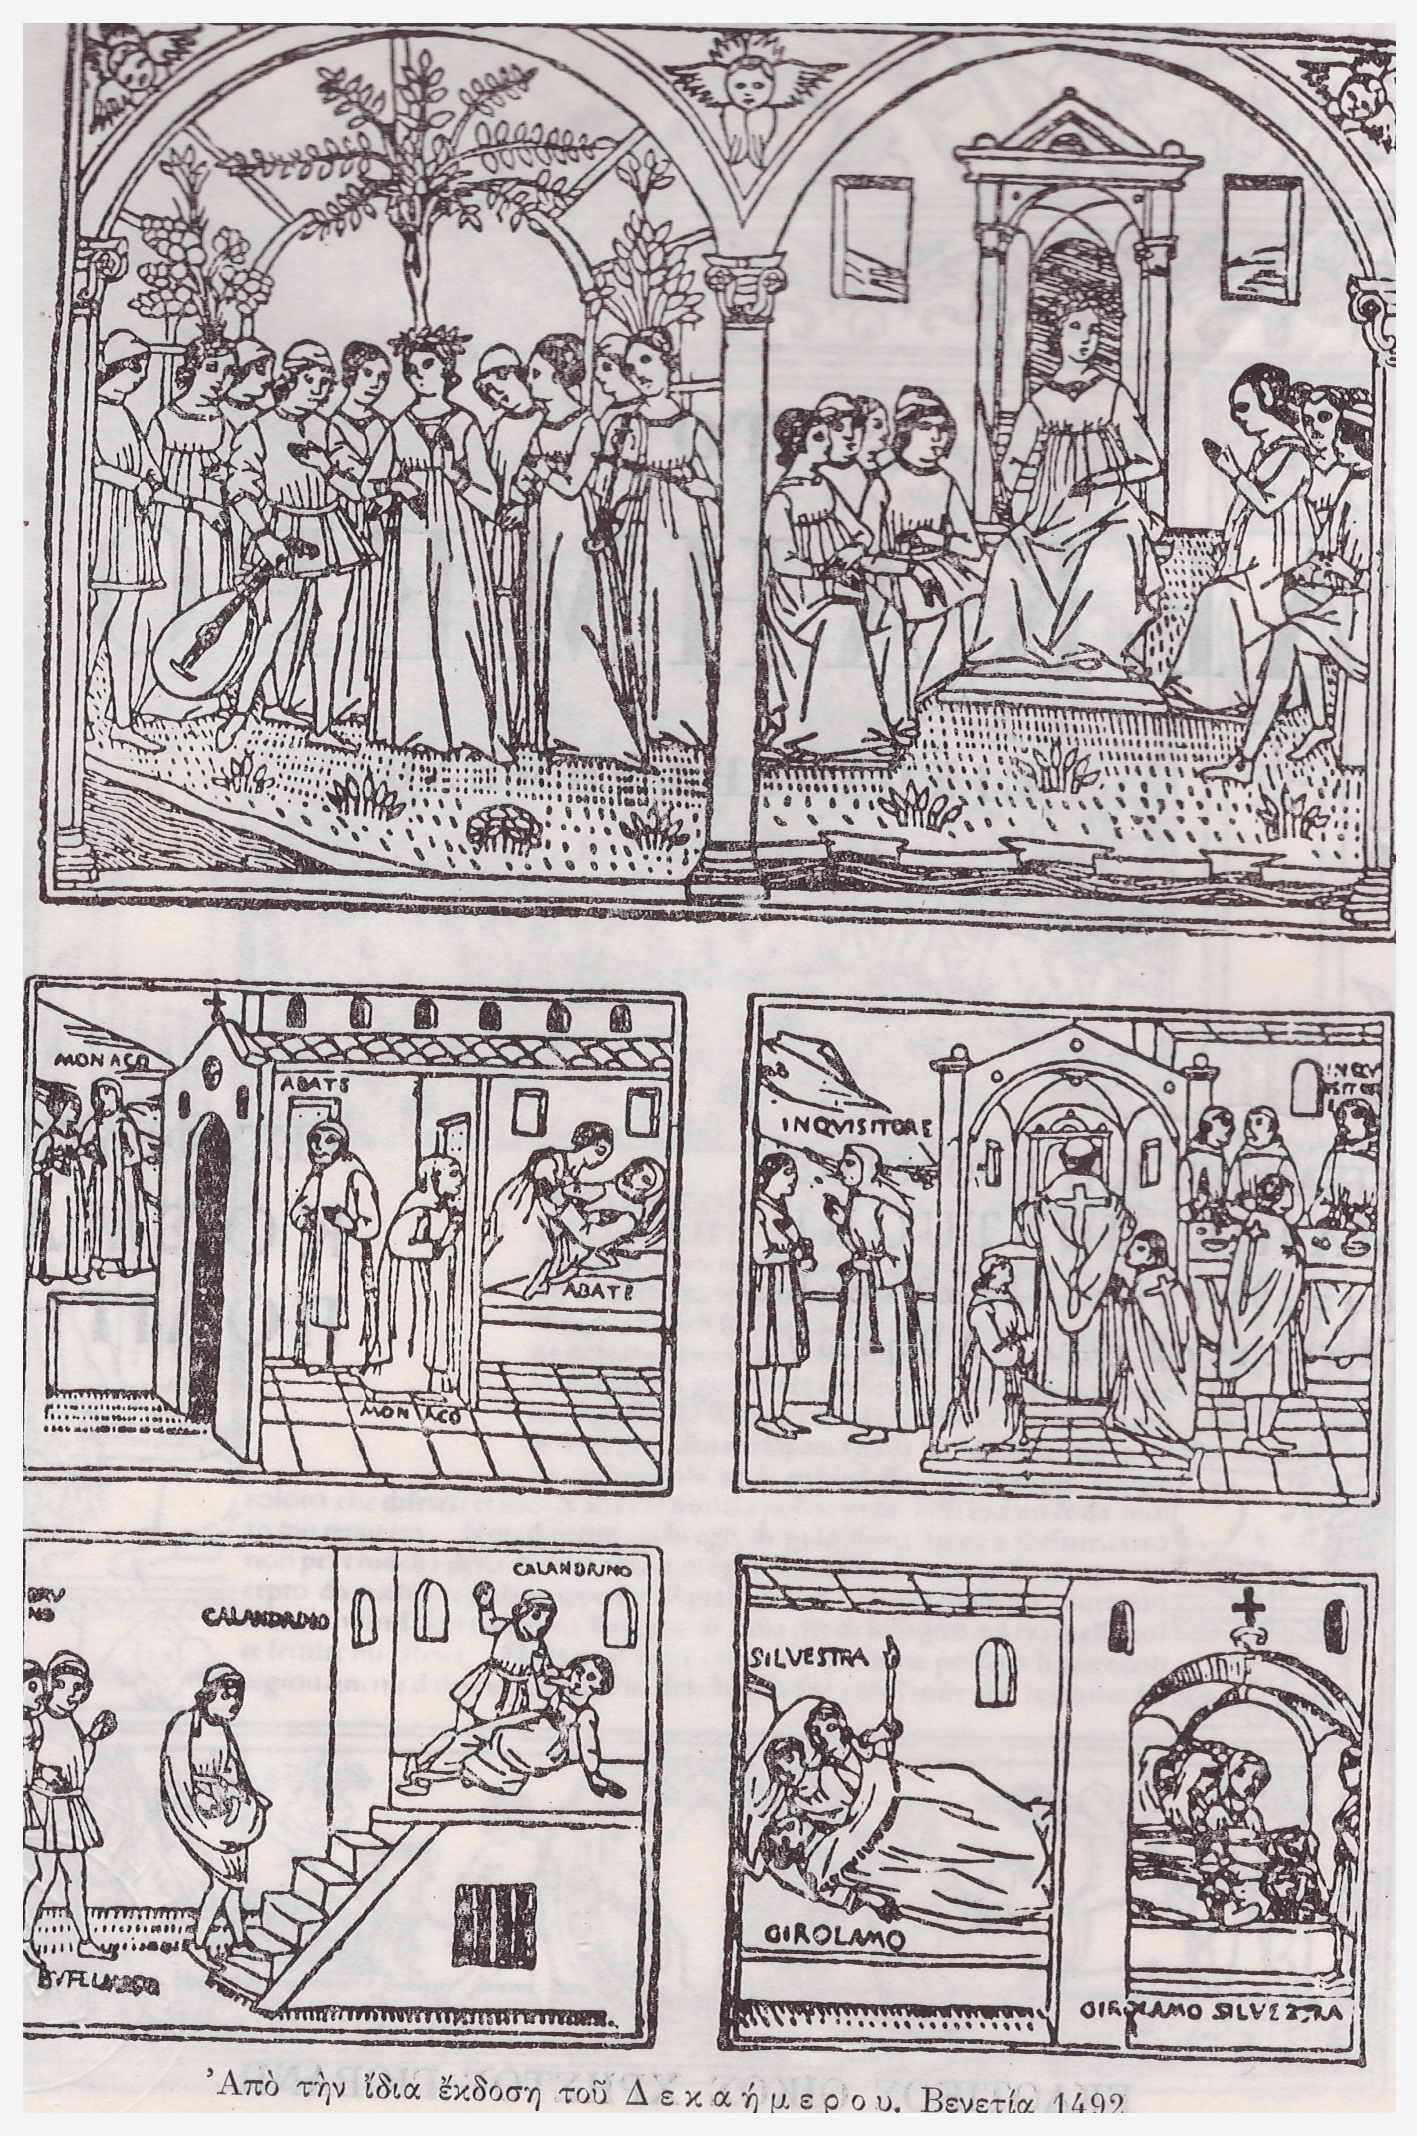 MONACO
ABATE
ABATE
MONACO
INQVISITORE
INQV
ISITOR
CALANDRINO
CALANDRINO
SILVESTRA
GIROLAMO
GIROLAMO SILVESTRA
Ἀπὸ τὴν ἴδια ἔκδοση τοῦ Δεκαήμερου. Βενετία 1492